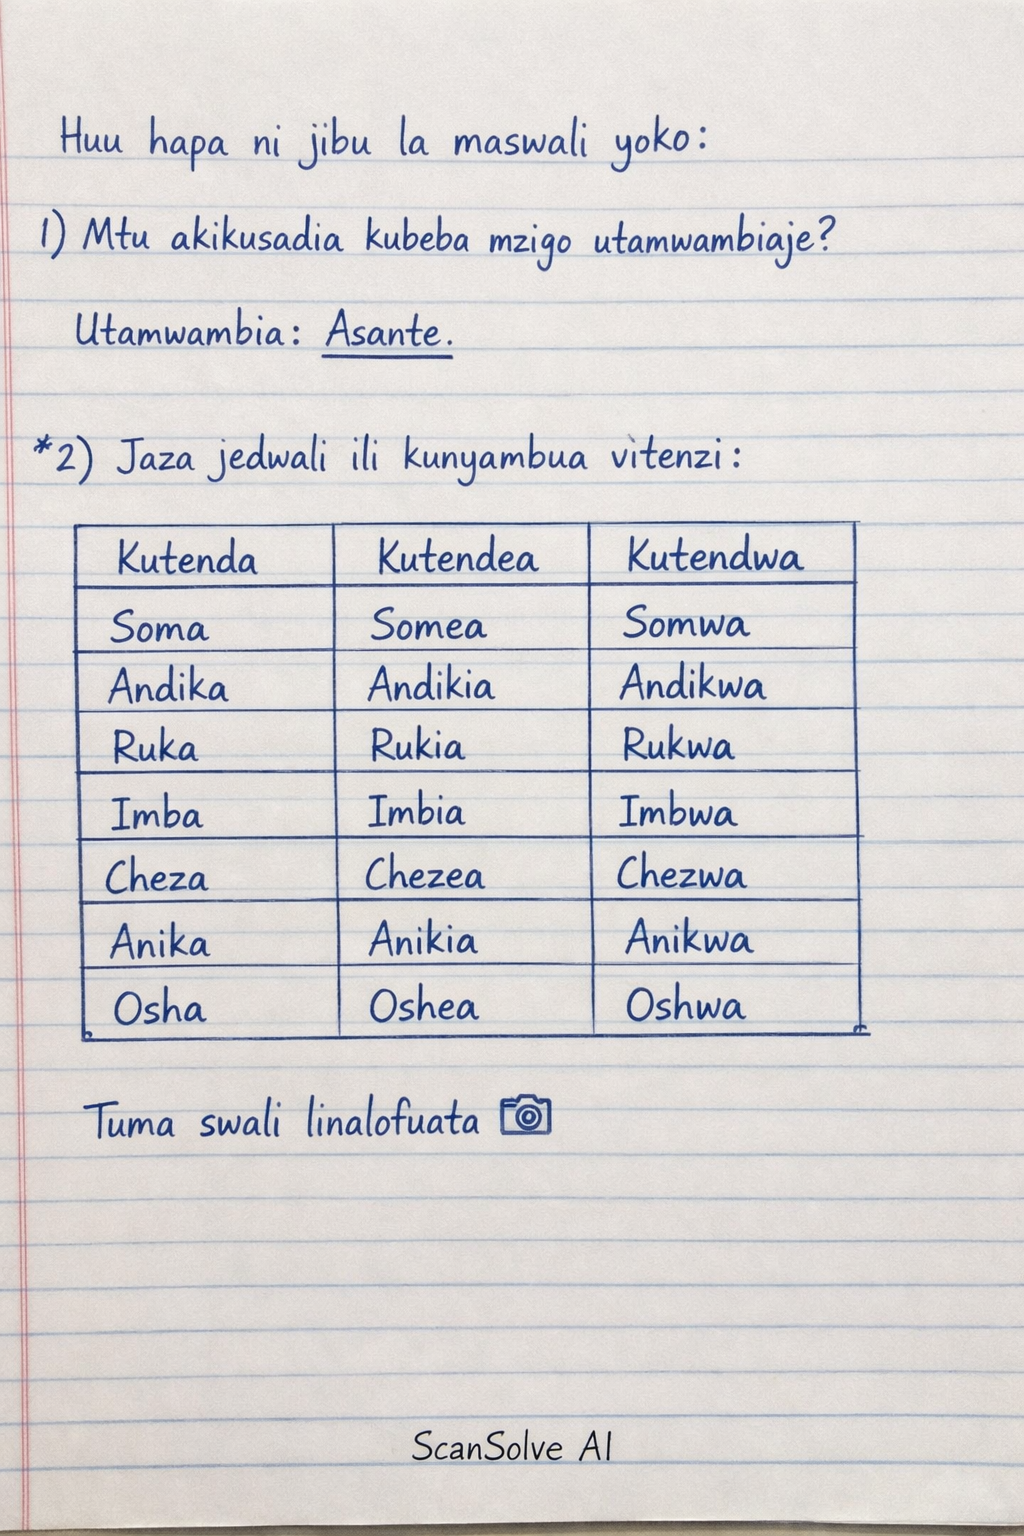 Huu hapa ni jibu la maswali yoko:
1) Mtu akikusadia kubeba mzigo utamwambiaje?
Utamwambia: Asante.
*2) Jaza jedwali ili kunyambua vitenzi:
Kutenda Kutendea Kutendwa
Soma Somea Somwa
Andika Andikia Andikwa
Ruka Rukia Rukwa
Imba Imbia Imbwa
Cheza Chezea Chezwa
Anika Anikia Anikwa
Osha Oshea Oshwa
Tuma swali linalofuata
ScanSolve AI